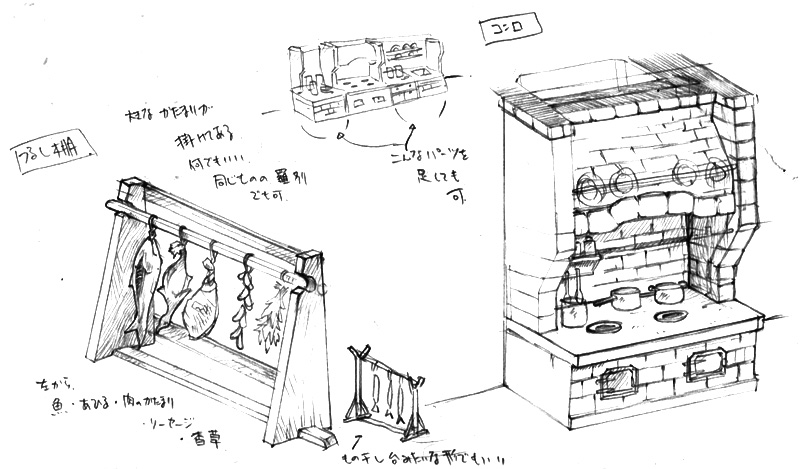 コンロ
つるし棚
大きなかたまりが
掛けてある
何でもいい
同じものの羅列
でも可.
こんなパーツを
足しても
可.
左から.
魚・あひる・肉のかたまり
・ソーセージ
・香草
もの干し台みたいな形でもいい